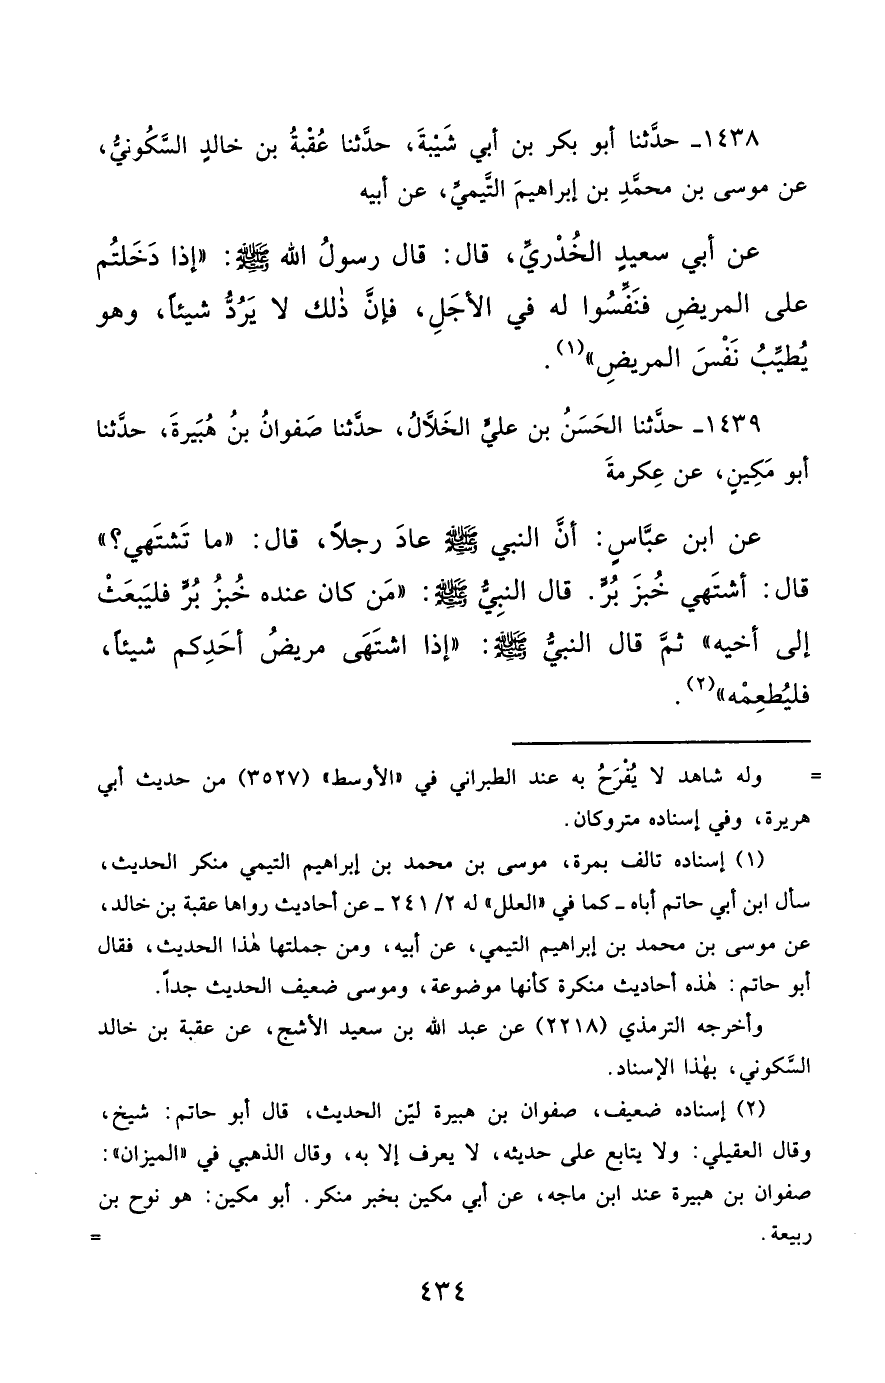 ١٤٣٨ـ حدَّثنا أبو بكر بن أبي شَيْبةَ، حدَّثنا عُقْبةُ بن خالدٍ السَّكُونيُّ،
عن موسى بن محمَّدِ بن إبراهيمَ التَّيميِّ، عن أبيه
عن أبي سعيدٍ الخُدْريِّ، قال: قال رسولُ الله ﷺ: «إذا دَخَلتُم
على المريضِ فنَفِّسُوا له في الأجَلِ، فإنَّ ذٰلك لا يَرُدُّ شيئاً، وهو
يُطيِّبُ نَفْسَ المريضِ»(١).
١٤٣٩ـ حدَّثنا الحَسَنُ بن عليٍّ الخَلَّالُ، حدَّثنا صَفوانُ بنُ هُبَيرةَ، حدَّثنا
أبو مَكِينٍ، عن عِكرمةَ
عن ابن عبَّاسٍ: أنَّ النبي ﷺ عادَ رجلاً، قال: «ما تَشتَهي؟»
قال: أشتَهي خُبزَ بُرٍّ. قال النبِيُّ ﷺ: «مَن كان عنده خُبزُ بُرٍّ فليَبعَثْ
إلى أخيه» ثمَّ قال النبيُّ ﷺ: «إذا اشتَهَى مريضُ أحَدِكم شيئاً،
فليُطعِمْه»(٢).
= وله شاهد لا يُفْرَحُ به عند الطبراني في «الأوسط» (٣٥٢٧) من حديث أبي
هريرة، وفي إسناده متروكان.
(١) إسناده تالف بمرة، موسى بن محمد بن إبراهيم التيمي منكر الحديث،
سأل ابن أبي حاتم أباه ـ كما في «العلل» له ٢/ ٢٤١ ـ عن أحاديث رواها عقبة بن خالد،
عن موسى بن محمد بن إبراهيم التيمي، عن أبيه، ومن جملتها هٰذا الحديث، فقال
أبو حاتم: هٰذه أحاديث منكرة كأنها موضوعة، وموسى ضعيف الحديث جداً.
وأخرجه الترمذي (٢٢١٨) عن عبد الله بن سعيد الأشج، عن عقبة بن خالد
السَّكوني، بهٰذا الإسناد.
(٢) إسناده ضعيف، صفوان بن هبيرة ليّن الحديث، قال أبو حاتم: شيخ،
وقال العقيلي: ولا يتابع على حديثه، لا يعرف إلا به، وقال الذهبي في «الميزان»:
صفوان بن هبيرة عند ابن ماجه، عن أبي مكين بخبر منكر. أبو مكين: هو نوح بن
ربيعة. =
٤٣٤